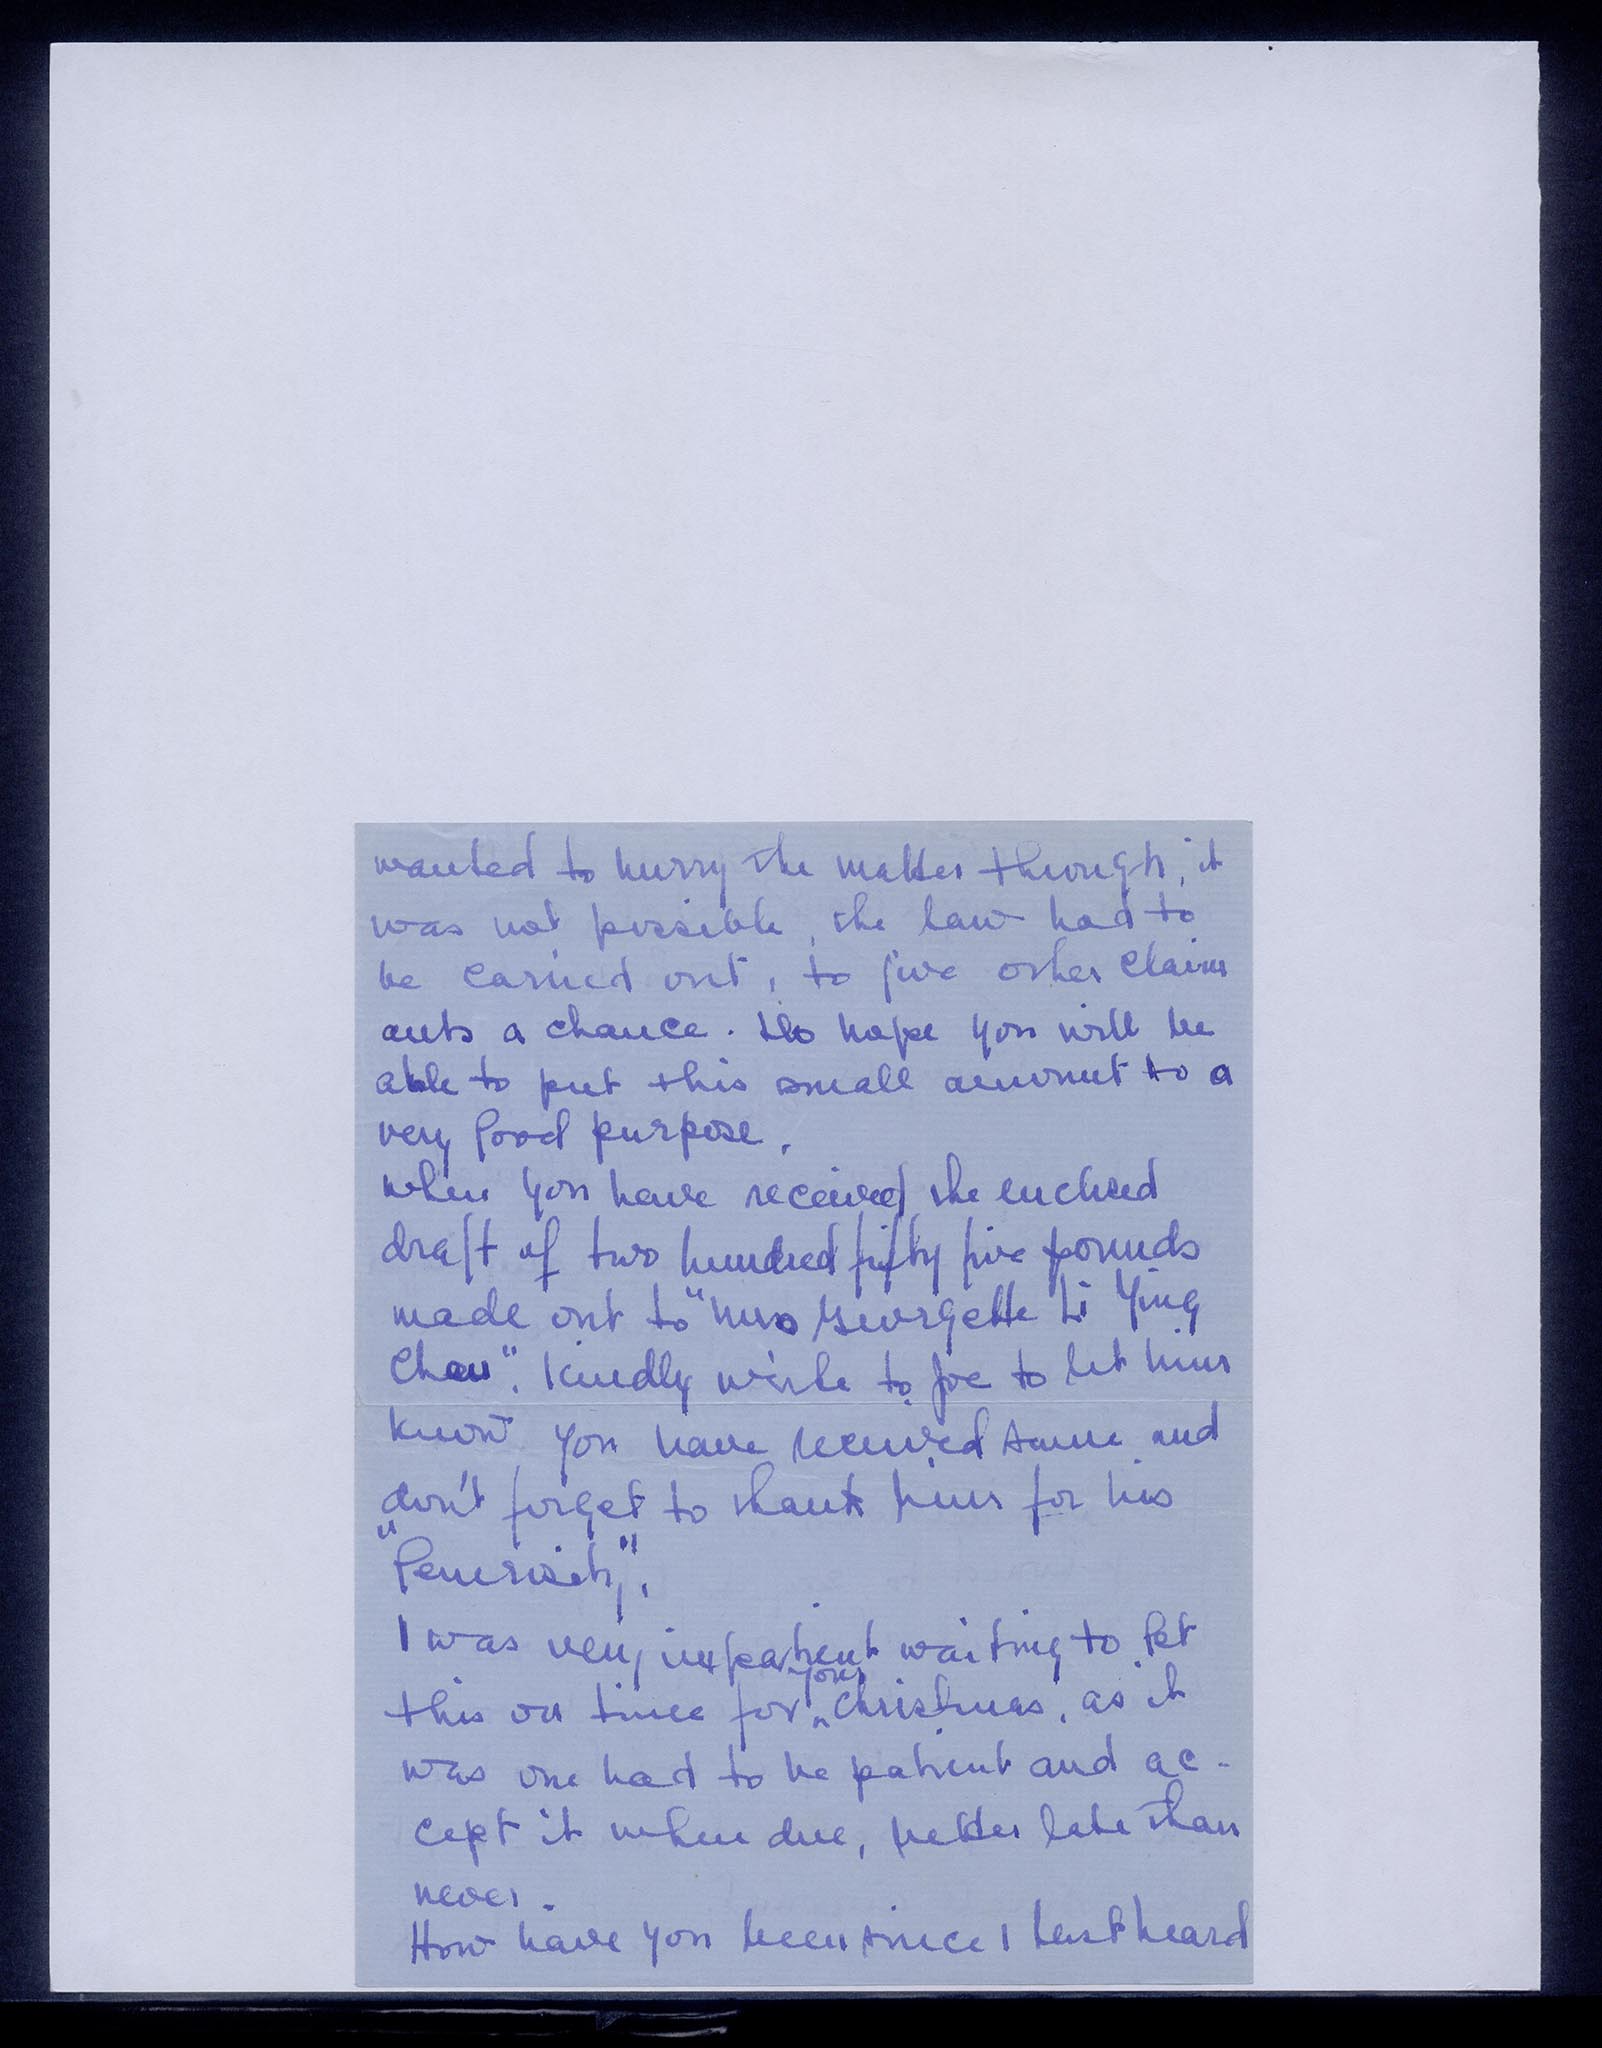 wanted to hurry the matter through, it
was not possible, the law had to
be carried out, to give other claim
ants a chance. Do hope you will be
able to put this small amount to a
very good purpose.
When you have received the enclosed
draft of two hundred fifty five pounds
made out to "Mrs Georgette Li Ying
Chen". Kindly write to Joe to let him
know you have received same and
don't forget to thank him for his
"Generosity".
I was very impatient waiting to get
this on time for your Christmas, as it
was one had to be patient and ac-
cept it when due, better late than
never.
How have you been since I last heard